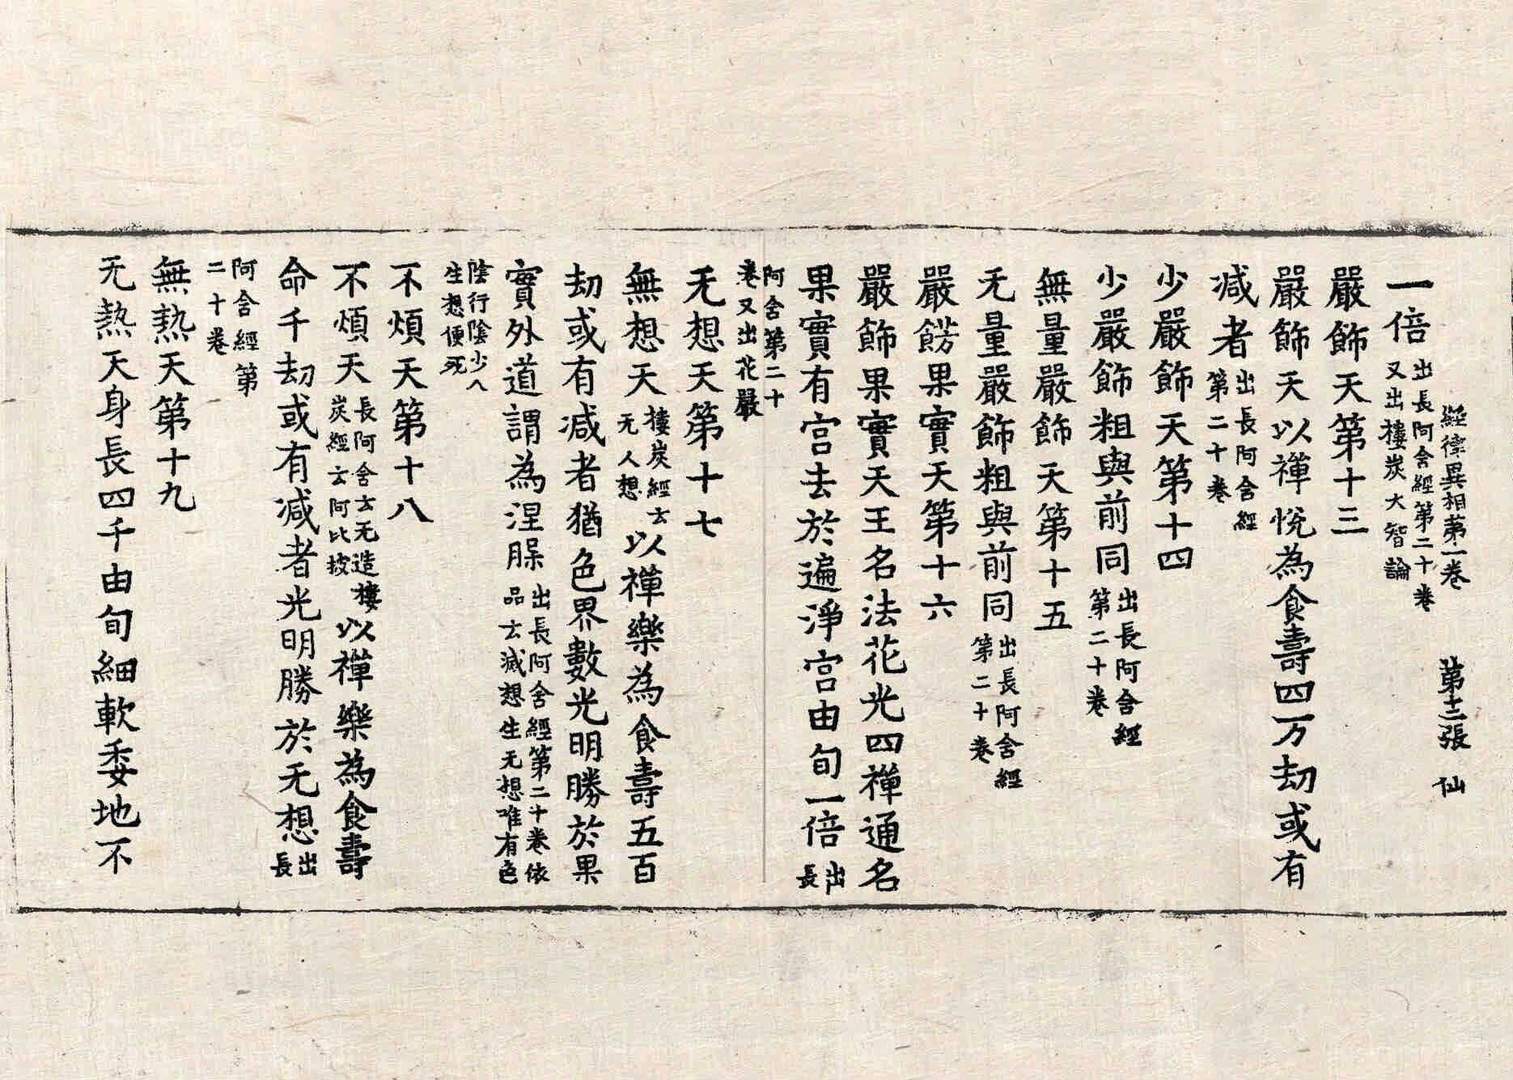 經律異相第一卷　第十三張　仙
一倍出長阿含經第二十卷又出樓炭大智論
嚴飾天第十三
嚴飾天以禪悅為食壽四万劫或有
減者出長阿含經第二十卷
少嚴飾天第十四
少嚴飾粗與前同出長阿含經第二十卷
無量嚴飾天第十五
无量嚴飾粗與前同出長阿含經第二十卷
嚴飾果實天第十六
嚴飾果實天王名法花光四禪通名
果實有宮去於遍淨宮由旬一倍出長
阿含第二十卷又出花嚴
无想天第十七
無想天樓炭經云无人想以禪樂為食壽五百
劫或有減者猶色界數光明勝於果
實外道謂為涅腂出長阿含經第二十卷依品云滅想生无想唯有色
陰行陰少入生想便死
不煩天第十八
不煩天長阿含云无造樓炭經云阿比披以禪樂為食壽
命千劫或有減者光明勝於无想出長
阿含經第二十卷
無熱天第十九
无熱天身長四千由旬細軟委地不